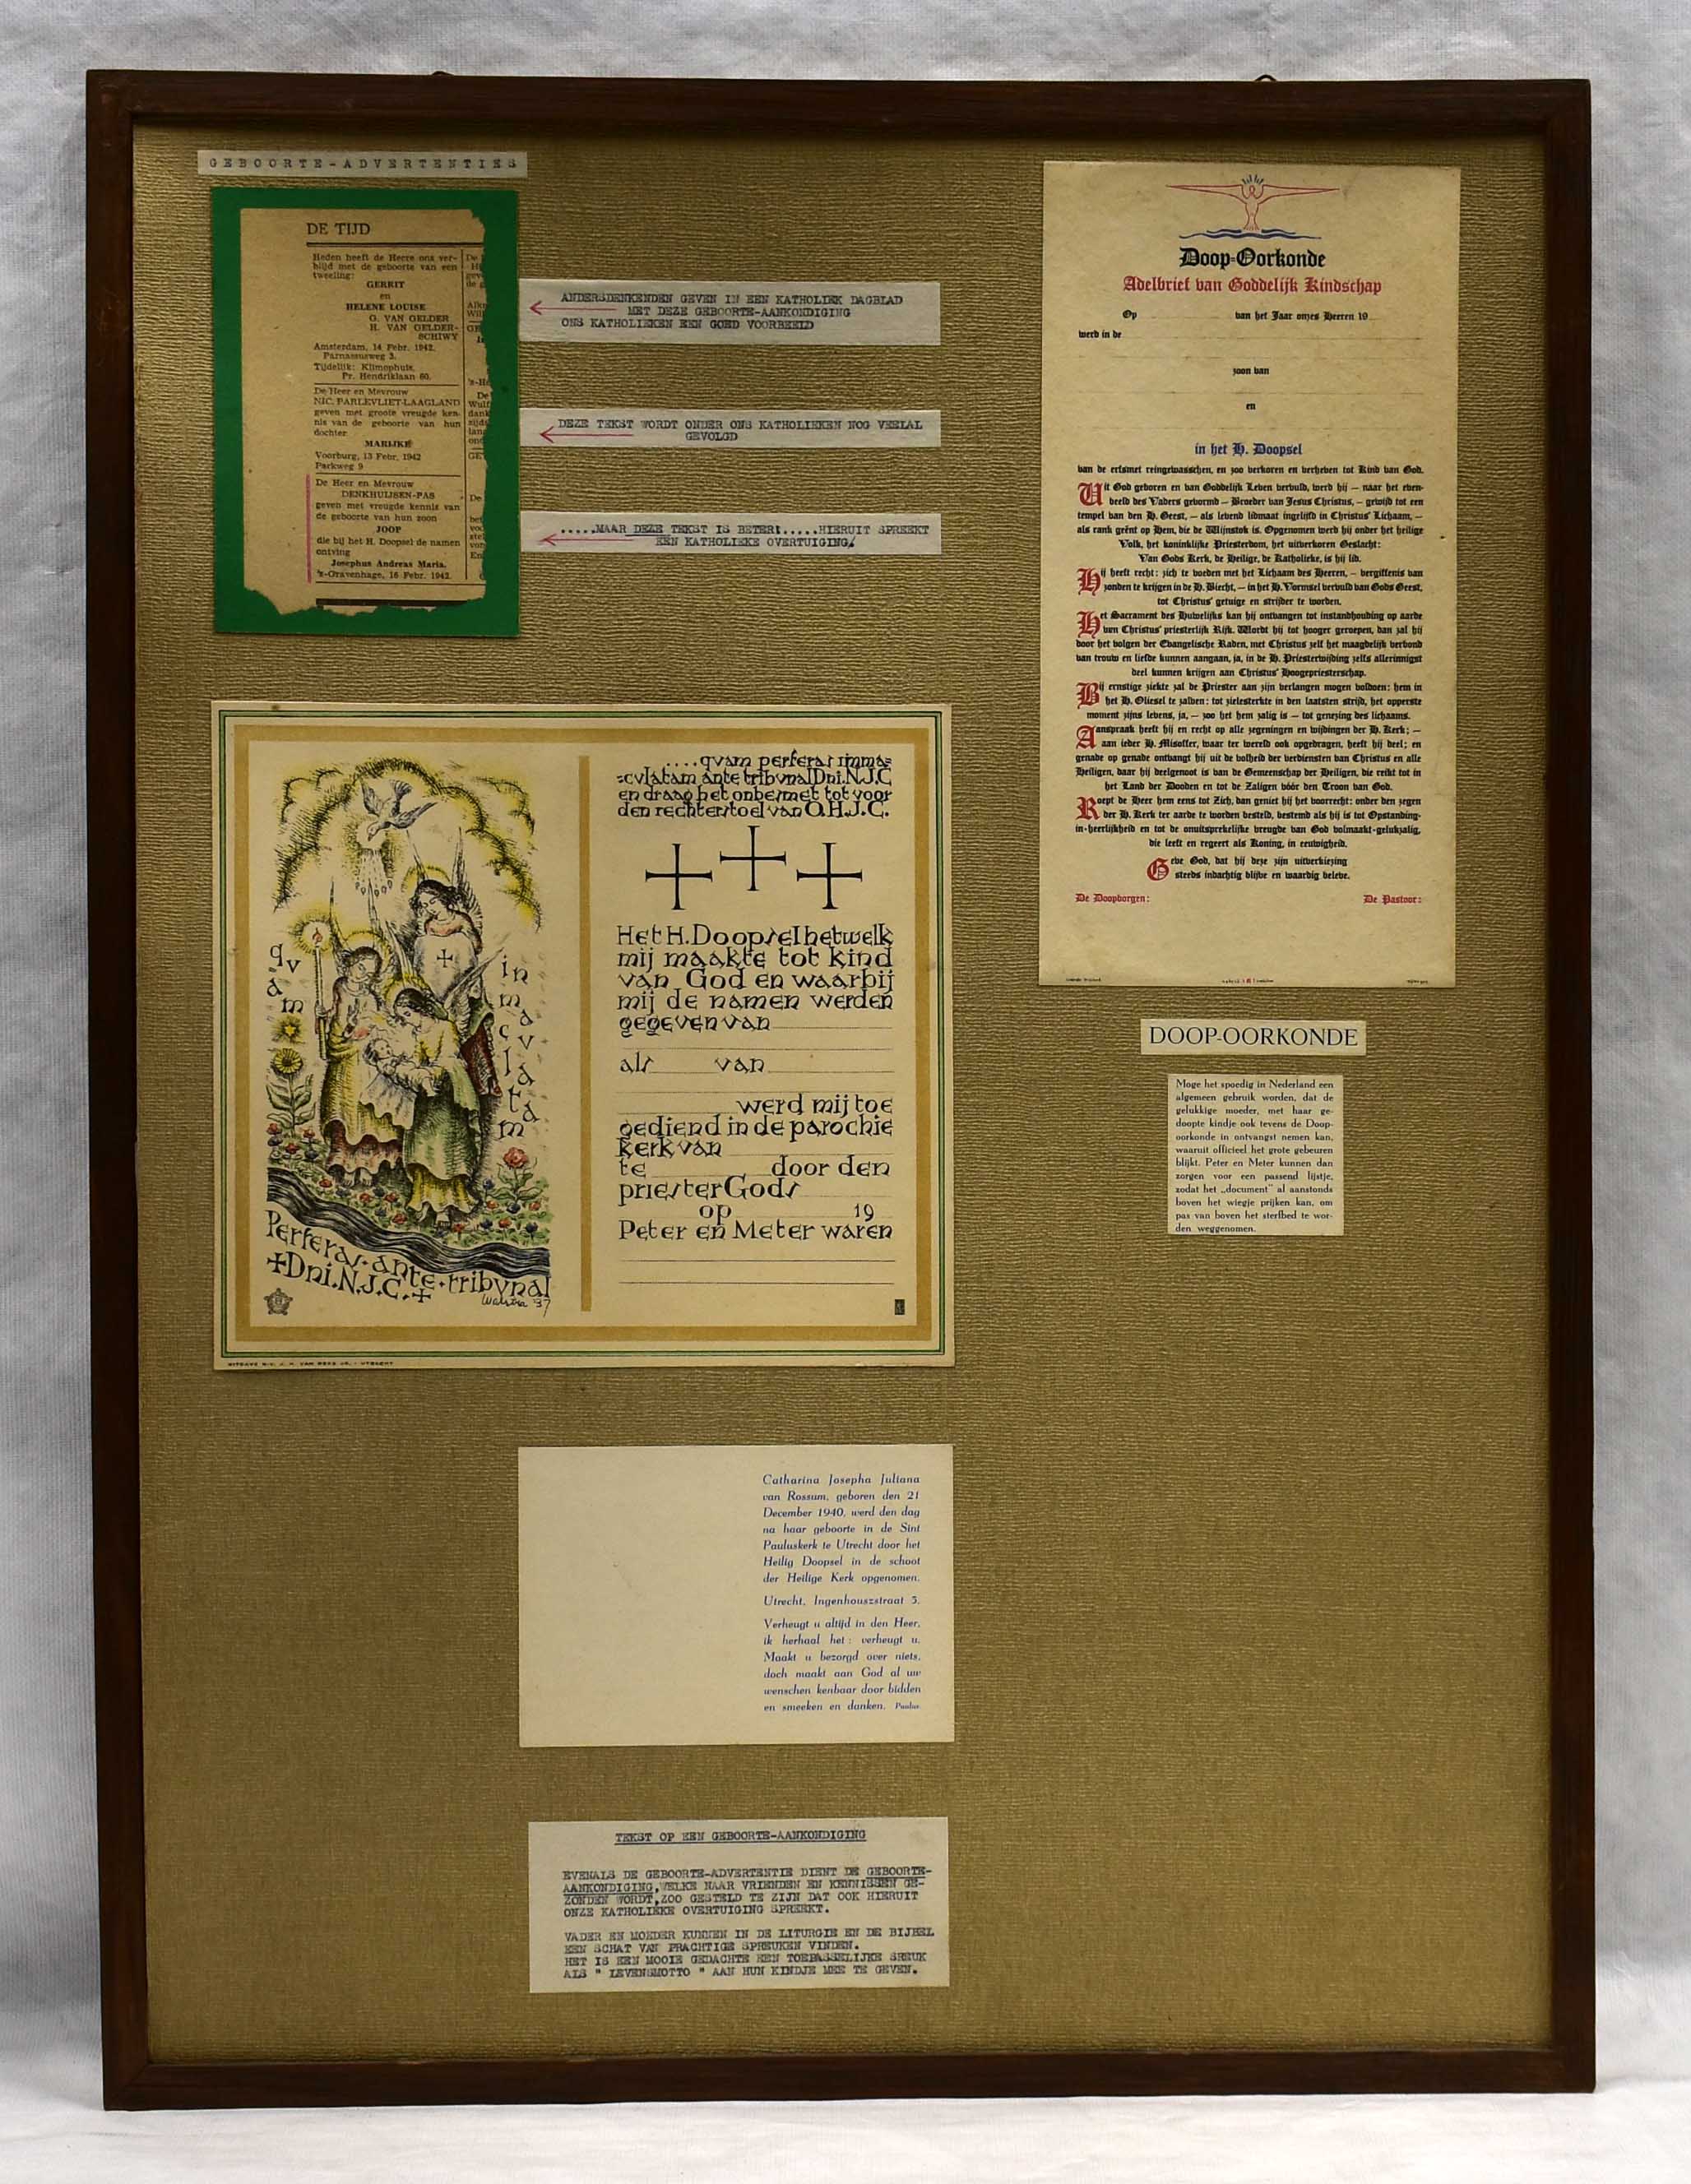 GEBOORTE-ADVERTENTIES
DE TIJD
Heden heeft de Heere ons ver-
blijd met de geboorte van een
tweeling:
GERRIT
en
HELENE LOUISE
G. VAN GELDER
H. VAN GELDER-
SCHIWY
Amsterdam, 14 Febr. 1942.
Parnassusweg 3.
Tijdelijk: Klimophuis,
Pr. Hendriklaan 60.
De Heer en Mevrouw
NIC. PARLEVLIET-LAAGLAND
geven met groote vreugde ken-
nis van de geboorte van hun
dochter
MARIJKE
Voorburg, 13 Febr. 1942
Parkweg 9
De Heer en Mevrouw
DENKHUIJSEN-PAS
geven met vreugde kennis van
de geboorte van hun zoon
JOOP
die bij het H. Doopsel de namen
ontving
Josephus Andreas Maria.
's-Gravenhage, 16 Febr. 1942.
ANDERSDENKENDEN GEVEN IN EEN KATHOLIEK DAGBLAD
MET DEZE GEBOORTE-AANKONDIGING
ONS KATHOLIEKEN EEN GOED VOORBEELD
DEZE TEKST WORDT ONDER ONS KATHOLIEKEN NOG VEELAL
GEVOLGD
.....MAAR DEZE TEKST IS BETER!.....HIERUIT SPREEKT
EEN KATHOLIEKE OVERTUIGING!
Doop-Oorkonde
Adelbrief van Goddelijk Kindschap
Op van het Jaar onzes Heeren 19
werd in de
zoon van
en
in het H. Doopsel
van de erfsmet reingewasschen, en zoo verkoren en verheven tot Kind van God.
Uit God geboren en van Goddelijk Leven vervuld, werd hij – naar het even-
beeld des Vaders gevormd – Broeder van Jesus Christus, – gewijd tot een
tempel van den H. Geest, – als levend lidmaat ingelijfd in Christus' Lichaam, –
als rank geënt op Hem, die de Wijnstok is. Opgenomen werd hij onder het heilige
Volk, het koninklijke Priesterdom, het uitverkoren Geslacht:
Van Gods Kerk, de Heilige, de Katholieke, is hij lid.
Hij heeft recht: zich te voeden met het Lichaam des Heeren, – vergiffenis van
zonden te krijgen in de H. Biecht, – in het H. Vormsel vervuld van Gods Geest,
tot Christus' getuige en strijder te worden.
Het Sacrament des Huwelijks kan hij ontvangen tot instandhouding op aarde
van Christus' priesterlijk Rijk. Wordt hij tot hooger geroepen, dan zal hij
door het volgen der Evangelische Raden, met Christus zelf het maagdelijk verbond
van trouw en liefde kunnen aangaan, ja, in de H. Priesterwijding zelfs allerinnigst
deel kunnen krijgen aan Christus' Hoogepriesterschap.
Bij ernstige ziekte zal de Priester aan zijn verlangen mogen voldoen: hem in
het H. Oliesel te zalven: tot zielesterkte in den laatsten strijd, het opperste
moment zijns levens, ja, – zoo het hem zalig is – tot genezing des lichaams.
Aanspraak heeft hij en recht op alle zegeningen en wijdingen der H. Kerk; –
aan ieder H. Misoffer, waar ter wereld ook opgedragen, heeft hij deel; en
genade op genade ontvangt hij uit de volheid der verdiensten van Christus en alle
Heiligen, daar hij deelgenoot is van de Gemeenschap der Heiligen, die reikt tot in
het Land der Dooden en tot de Zaligen vóór den Troon van God.
Roept de Heer hem eens tot Zich, dan geniet hij het voorrecht: onder den zegen
der H. Kerk ter aarde te worden besteld, bestemd als hij is tot Opstanding-
in-heerlijkheid en tot de onuitsprekelijke vreugde van God volmaakt-gelukzalig,
die leeft en regeert als Koning, in eeuwigheid.
Geve God, dat hij deze zijn uitverkiezing
steeds indachtig blijve en waardig beleve.
De Doopborgen: De Pastoor:
DOOP-OORKONDE
Moge het spoedig in Nederland een
algemeen gebruik worden, dat de
gelukkige moeder, met haar ge-
doopte kindje ook tevens de Doop-
oorkonde in ontvangst nemen kan,
waaruit officieel het grote gebeuren
blijkt. Peter en Meter kunnen dan
zorgen voor een passend lijstje,
zodat het „document" al aanstonds
boven het wiegje prijken kan, om
pas van boven het sterfbed te wor-
den weggenomen.
qvam inmacvlatam
Perferas·ante·tribvnal
+Dni.N.J.C.+
Walstra '37
UITGAVE N.V. J. H. VAN REES JR. - UTRECHT
....qvam perferas imma=
=cvlatam ante tribvnal Dni.N.J.C
en draag het onbesmet tot voor
den rechterstoel van O.H.J.C.
Het H. Doopsel hetwelk
mij maakte tot kind
van God en waarbij
mij de namen werden
gegeven van
als van
werd mij toe
gediend in de parochie
kerk van
te door den
priester Gods
op 19
Peter en Meter waren
Catharina Josepha Juliana
van Rossum, geboren den 21
December 1940, werd den dag
na haar geboorte in de Sint
Pauluskerk te Utrecht door het
Heilig Doopsel in de schoot
der Heilige Kerk opgenomen.
Utrecht, Ingenhouszstraat 5.
Verheugt u altijd in den Heer,
ik herhaal het: verheugt u.
Maakt u bezorgd over niets,
doch maakt aan God al uw
wenschen kenbaar door bidden
en smeeken en danken. Paulus
TEKST OP EEN GEBOORTE-AANKONDIGING
EVENALS DE GEBOORTE-ADVERTENTIE DIENT DE GEBOORTE-
AANKONDIGING,WELKE NAAR VRIENDEN EN KENNISSEN GE-
ZONDEN WORDT,ZOO GESTELD TE ZIJN DAT OOK HIERUIT
ONZE KATHOLIEKE OVERTUIGING SPREEKT.
VADER EN MOEDER KUNNEN IN DE LITURGIE EN DE BIJBEL
EEN SCHAT VAN PRACHTIGE SPREUKEN VINDEN.
HET IS EEN MOOIE GEDACHTE EEN TOEPASSELIJKE SREUK
ALS " LEVENSMOTTO " AAN HUN KINDJE MEE TE GEVEN.